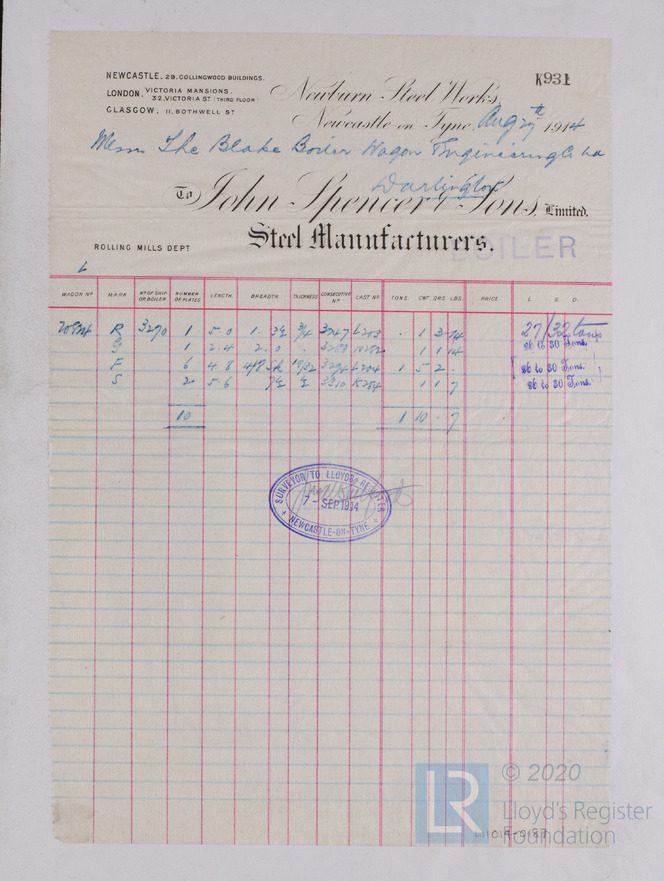 K931
NEWCASTLE. 29. COLLINGWOOD BUILDINGS.
LONDON. VICTORIA MANSIONS.
32, VICTORIA ST (THIRD FLOOR)
GLASGOW. 11, BOTHWELL ST
Newburn Steel Works,
Newcastle-on-Tyne, Aug 27th 1914
Messrs The Blake Boiler Wagon & Engineering Co Ld
Darlington
To John Spencer & Sons, Limited,
Steel Manufacturers.
BOILER
ROLLING MILLS DEPT
L
WAGON Nº MARK Nº OF SHIP OR BOILER NUMBER OF PLATES LENGTH. BREADTH. THICKNESS CONSECUTIVE Nº CAST Nº TONS. CWT. QRS. LBS. PRICE. L. S. D.
R 3270 1 5.0 1. 3½ 3/4 3247 L203 . 1 3 14 27/32 tons
G 1 2.4 2.0 1 1 14 26 to 30 Tons.
F 6 4 8 19/32 L204 1 5 2 . 26 to 30 Tons.
S 2 5.6 7½ ½ 3310 K284 1 1 7 26 to 30 Tons.
10 1 10 . 7
SURVEYOR TO LLOYD'S REGISTER
7 - SEP 1914
NEWCASTLE-ON-TYNE
LR
© 2020
Lloyd's Register
Foundation